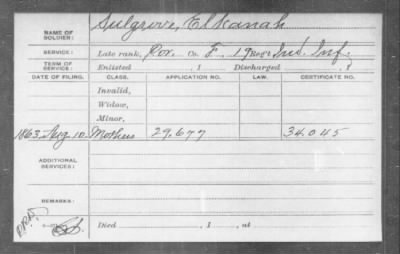 NAME OF SOLDIER: Sulgrove, Elkanah
SERVICE: Late rank, Cor. Co. F, 19 Reg't Ind. Inf.
TERM OF SERVICE: Enlisted , 1 Discharged , 1
DATE OF FILING. CLASS. APPLICATION NO. LAW. CERTIFICATE NO.
Invalid,
Widow,
Minor,
1863, Aug 10. Mothers 29,677 34.045
ADDITIONAL SERVICES:
REMARKS:
Died , 1 , at